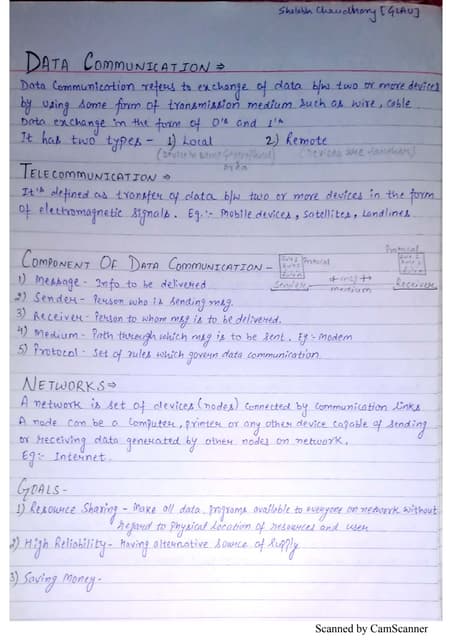 Chaudhary [GLAU]
DATA COMMUNICATION ⇒
Data Communication refers to exchange of data b/w two or more devices
by using some form of transmission medium such as wire, cable
Data exchange in the form of 0's and 1's
It has two types - 1) Local 2) Remote
area
TELECOMMUNICATION ⇒
It's defined as transfer of data b/w two or more devices in the form
of elettromagnetic signals. Eg:- Mobile devices, satellites, landlines
COMPONENT OF DATA COMMUNICATION -
Protocol Protocol
Rule 1
1) Message - Info to be delivered
Sender msg medium Receiver
2) Sender - Person who is sending msg.
3) Receiver - Person to whom msg is to be delivered.
4) Medium - Path through which msg is to be sent. Eg:- Modem
5) Protocol - Set of rules which govern data communication
NETWORKS ⇒
A network is set of devices (nodes) connected by communication links
A node can be a computer, printer or any other device capable of sending
or receiving data generated by other nodes on network.
Eg:- Internet.
GOALS -
1) Resource Sharing - Make all data, programs available to everyone on network without
regard to physical location of resources and user
2) High Reliability - Having alternative source of supply
3) Saving Money -
Scanned by CamScanner